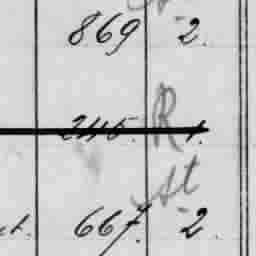 869 2.
245. R 1.
st
ct. 667. 2.